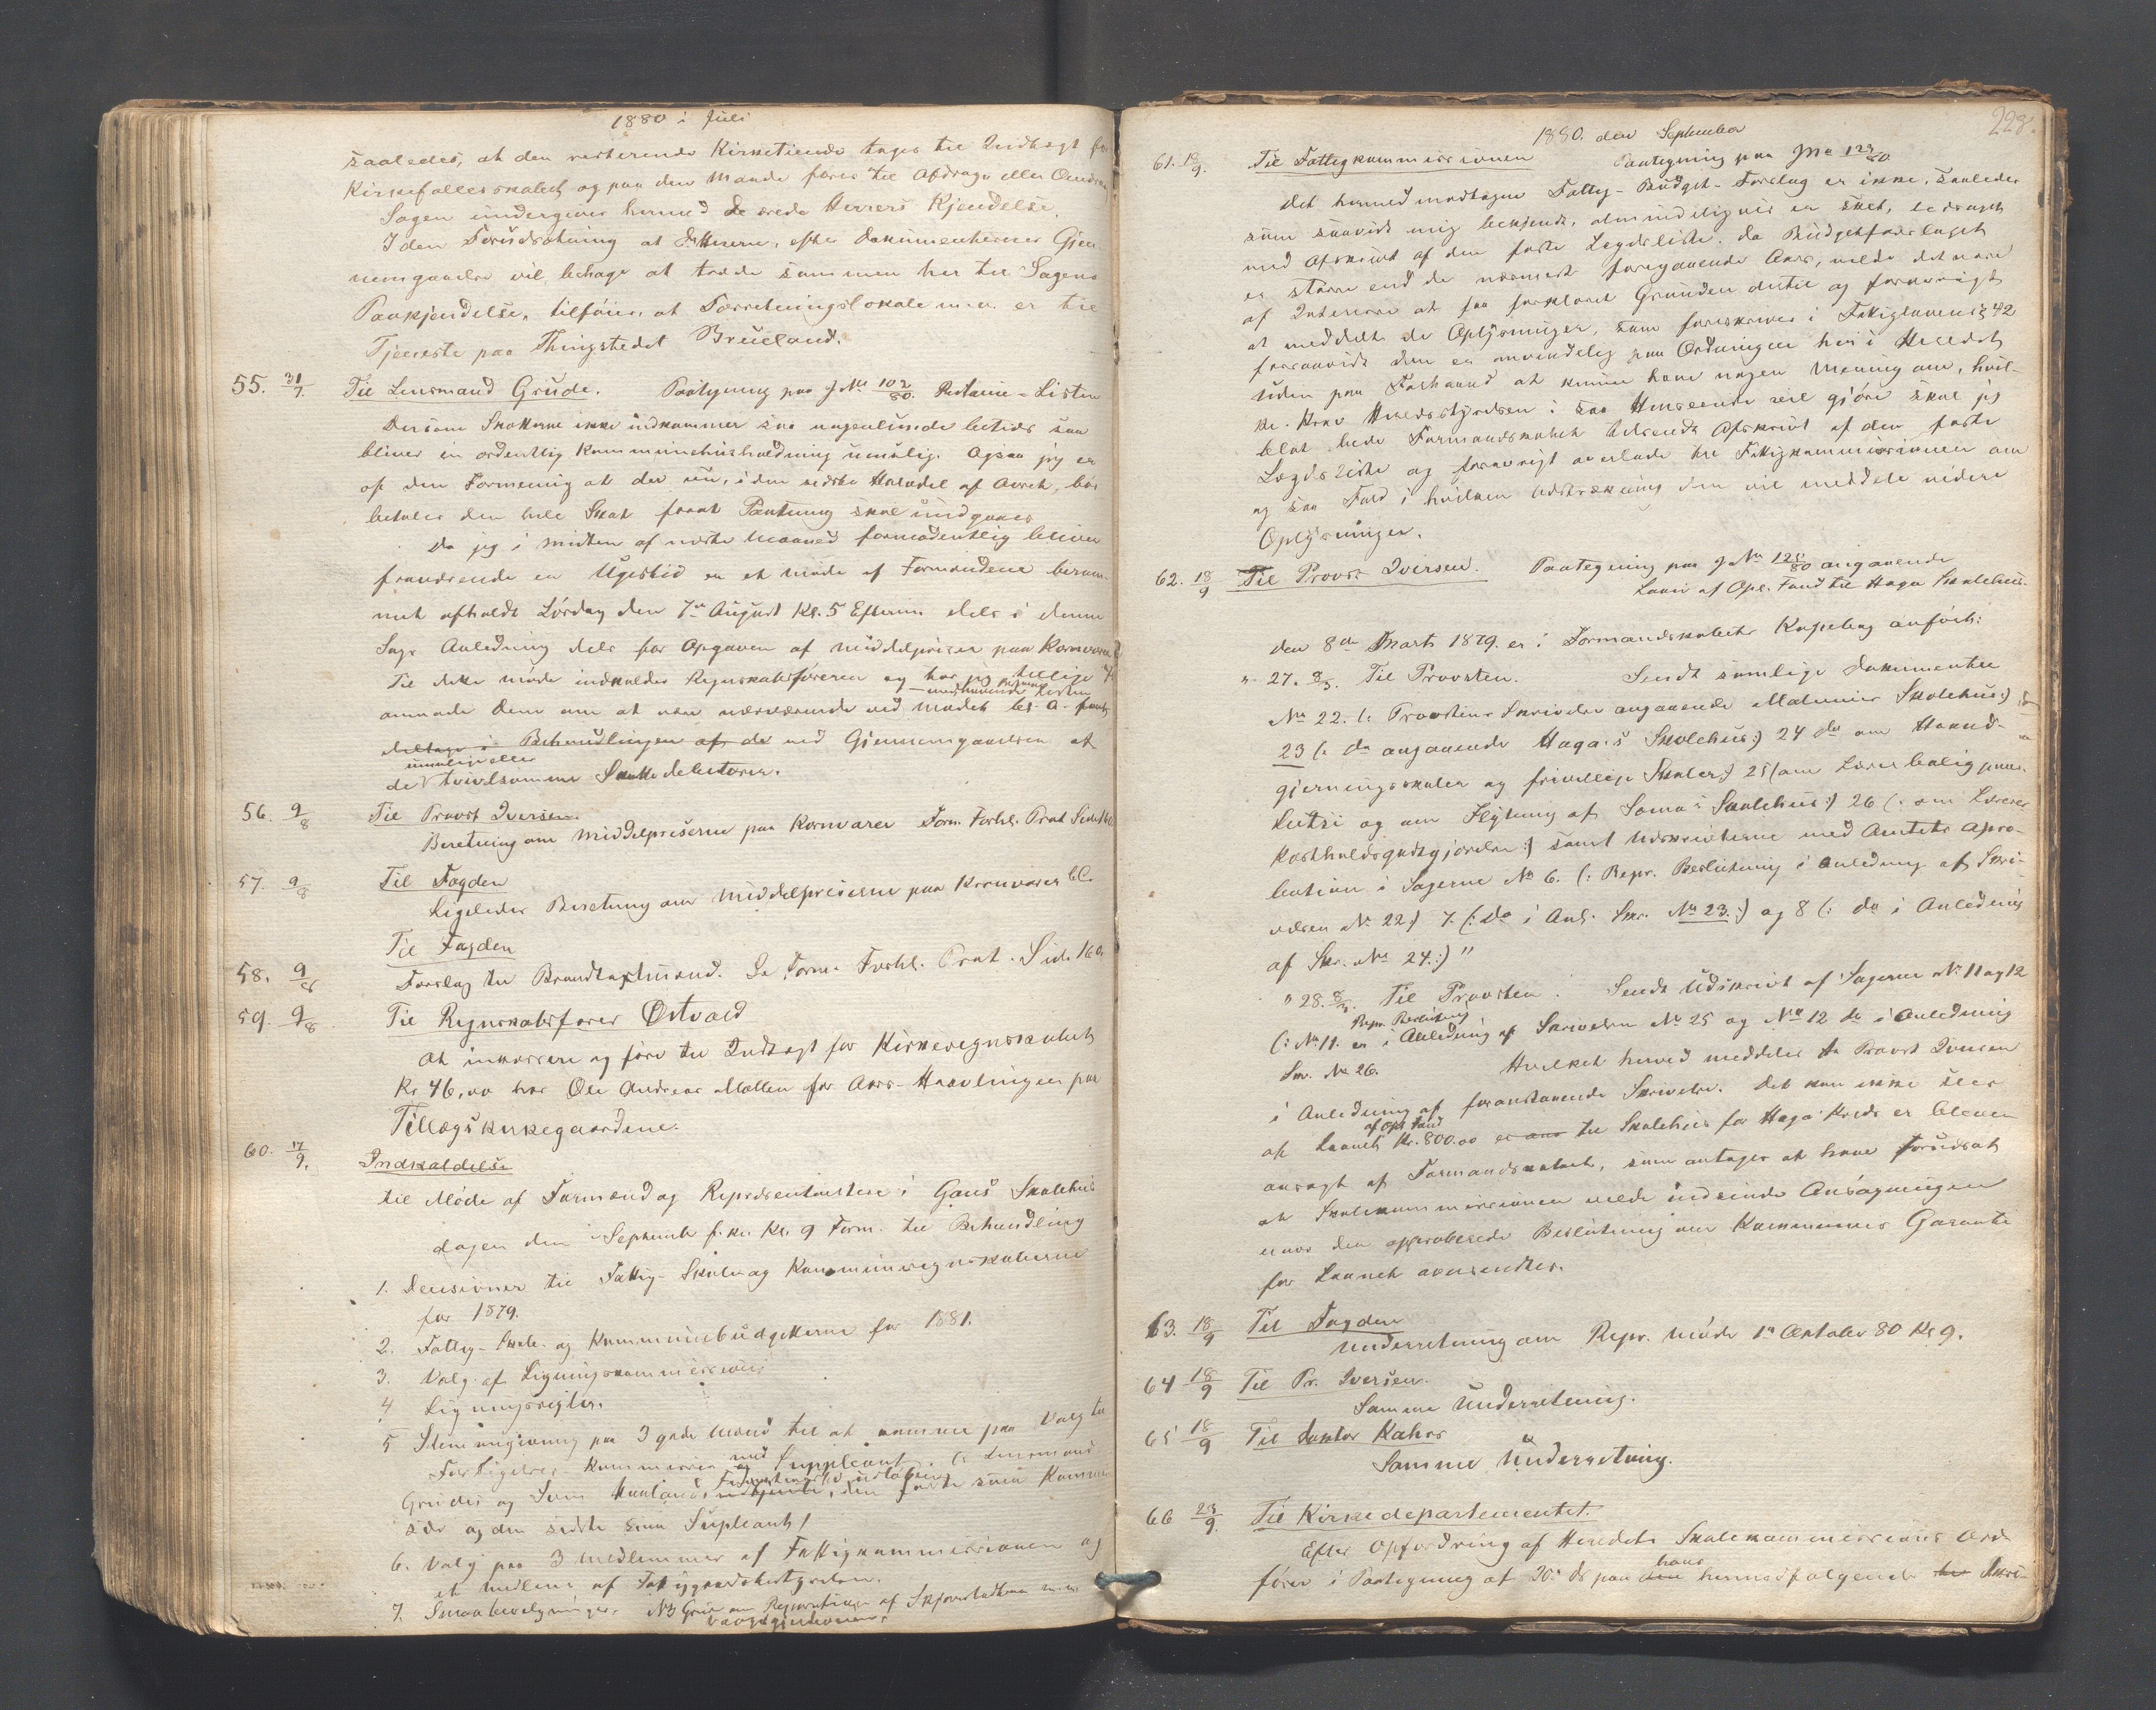 1880 i Juli
saaledes, at den resterende Kirketiende tages til Indtægt for
Kirkefolleskabet og paa den Maade føres til Afdrag eller
Sagen undergives herved de ærede Herrers Kjendelse.
I den Forudsætning at D'Herrer, efter Dokumenternes Gjen-
nemgaaelse vil behage at træde sammen her til Sagens
Paakjendelse, tilføies, at Forretningslokale m.v. er til
Tjeneste paa Thingstedet Brueland.
55. 31/7. Til Lensmand Grude. Paategning paa J No 102/80. Restance-Listen
Dersom Skatterne ikke indkommer saa nogenlunde betids saa
bliver en ordentlig Kommunehusholdning umulig. Ogsaa jeg er
af den Formening at der nu, i den sidste Halvdel af Aaret, bør
betales den hele Skat forat Pantning skal undgaaes
Da jeg i Midten af næste Maaned formodentlig bliver
fraværende en Ugestid er et Møde af Formændene beram-
met afholdt Lørdag den 7de August Kl. 5 Efterm. dels i denne
Sags Anledning dels for Opgaven af Middelpriser paa Kornvarer
Til dette Møde indkaldes Regnskabsføreren og har jeg tillige
anmode Dem om at være nærværende ved Mødet bl. a. for at
medhavende Listen
deltage i Behandlingen af de ved Gjennemgaaelsen af
umulige eller
de tvivlsomme Skattedebitorer.
56. 9/8 Til Provst Iversen.
Beretning om Middelpriserne paa Kornvarer Form. Forhl. Prot Side 160
57. 9/8 Til Fogden
Ligeledes Beretning om Middelpriserne paa Kornvarer &c.
Til Fogden
58. 9/8 Forslag til Brandtaxtmænd. Se Form. Forhl. Prot. Side 160
59. 9/8 Til Regnskabsfører Østvold
At inkassere og føre til Indtægt for Kirkeregnskabet
Kr 46,00 hos Ole Andreas Mællen for Aars-Haavlingen paa
Tillægskirkegaardene.
60. 17/9. Indkaldelse
til Møde af Formænd og Repræsentanter i Gans Skolehus
dagen den September f. kl. Kl. 9 Form. til Behandling
1. Decisioner til Fattig- Skole og Kommuneregnskaberne
for 1879.
2. Fattig- Skole- og Kommunebudgetterne for 1881.
3. Valg af Ligningskommission
4 Ligningsregler.
5 Stemmegivning paa 3 gode Mænd til at komme paa Valg til
Forligelses-Kommissær med Suppleant. (: Lensmand
og Funktionstid udløber
Grudes og Sven Hanlands udtjente, den første som Kommis-
sær og den sidste som Supleant)
6. Valg paa 3 Medlemmer af Fattigkommissionen og
et Medlem af Fattiggaardsbestyrelsen.
7. Smaabevilgninger. NB Grev om Reparation af Skjævelandbroen
Vaagegjerdeveien.
228.
1880. den September
61. 18/9. Til Fattigkommissionen Paategning paa J No 123/80
Det hermed modtagne Fattig-Budget-Forslag er ikke, saaledes
som saavidt mig bekjendt, almindeligvis er skeet, ledsaget
med Afskrivt af den faste Lægdsliste. Da Budgetforslaget
er større end de nærmest foregaaende Aars, vilde det være
af Interesse at faa forklaret Grunden dertil og forøvrigt
at meddelt de Oplysninger, som foreskrives i Fattiglovens § 42
forsaavidt den er anvendelig paa Ordningen her i Heredet
uden paa Forhaand at kunne have nogen Mening om, hvil-
ke Krav Heredsstyrelsen i saa Henseende vil gjøre skal jeg
blot bede Formandskabet tilsendt Afskrivt af den faste
Lægdsliste og forøvrigt overlade til Fattigkommissionen om
og saa Fald i hvilken Udstrækning den vil meddele videre
Oplysninger.
62. 18/9 Til Provst Iversen. Paategning paa J No 125/80 angaaende
Laan af Opl. Fond til Haga Skolehus.
den 8de Marts 1879. er i Formandskabets Kopibog anført:
" 27. 8/3. Til Provsten. Sendt samtlige Dokumenter
No 22. (: Provstens Skrivelse angaaende Malmeims Skolehus:)
23 (: do angaaende Haga's Skolehus:) 24 do om Haand-
gjerningsskoler og frivillige Skoler:) 25 (om Lærerbolig paa
Lutsi og om Flytning af Soma's Skolehus:) 26 (: om Læreres
Kostholdsgodtgjørelse:) samt Udskrivterne med Amtets Apro-
bation i Sagerne No 6. (: Repr. Beslutning i Anledning af Skri-
velsen No 22:) 7. (: do i Anl. Skr. No 23.:) og 8 (: do i Anledning
af Skr. No 24.:)"
" 28. 8/3. Til Provsten. Sendt Udskrivt af Sagerne No 11 og 12
Repr. Beslutning
(: No 11. er i Anledning af Skrivelsen No 25 og No 12 do i Anledning
Skr. No 26. Hvilket herved meddeles Hr Provst Iversen
i Anledning af foranstaaende Skrivelse. Det kan ikke sees
af Opl. Fond
at Laanet Kr. 800.00 er ans til Skolehus for Haga Kreds er bleven
ansøgt af Formandskabet, som antages at have forudsat
at Skolekommissionen vilde indsende Ansøgningen
naar den approberede Beslutning om Kommunens Garanti
for Laanet oversendtes.
63. 18/9 Til Fogden
Underretning om Repr. Møde 1ste Oktober 80 Kl 9.
64 18/9 Til Pr. Iversen.
Samme Underretning.
65 18/9 Til Doktor Kahrs
Samme Underretning.
66 23/9. Til Kirkedepartementet.
Efter Opfordring af Heredets Skolekommissions Ord-
fører i Paategning af 20de ds paa den hans hermedfølgende her Skri-